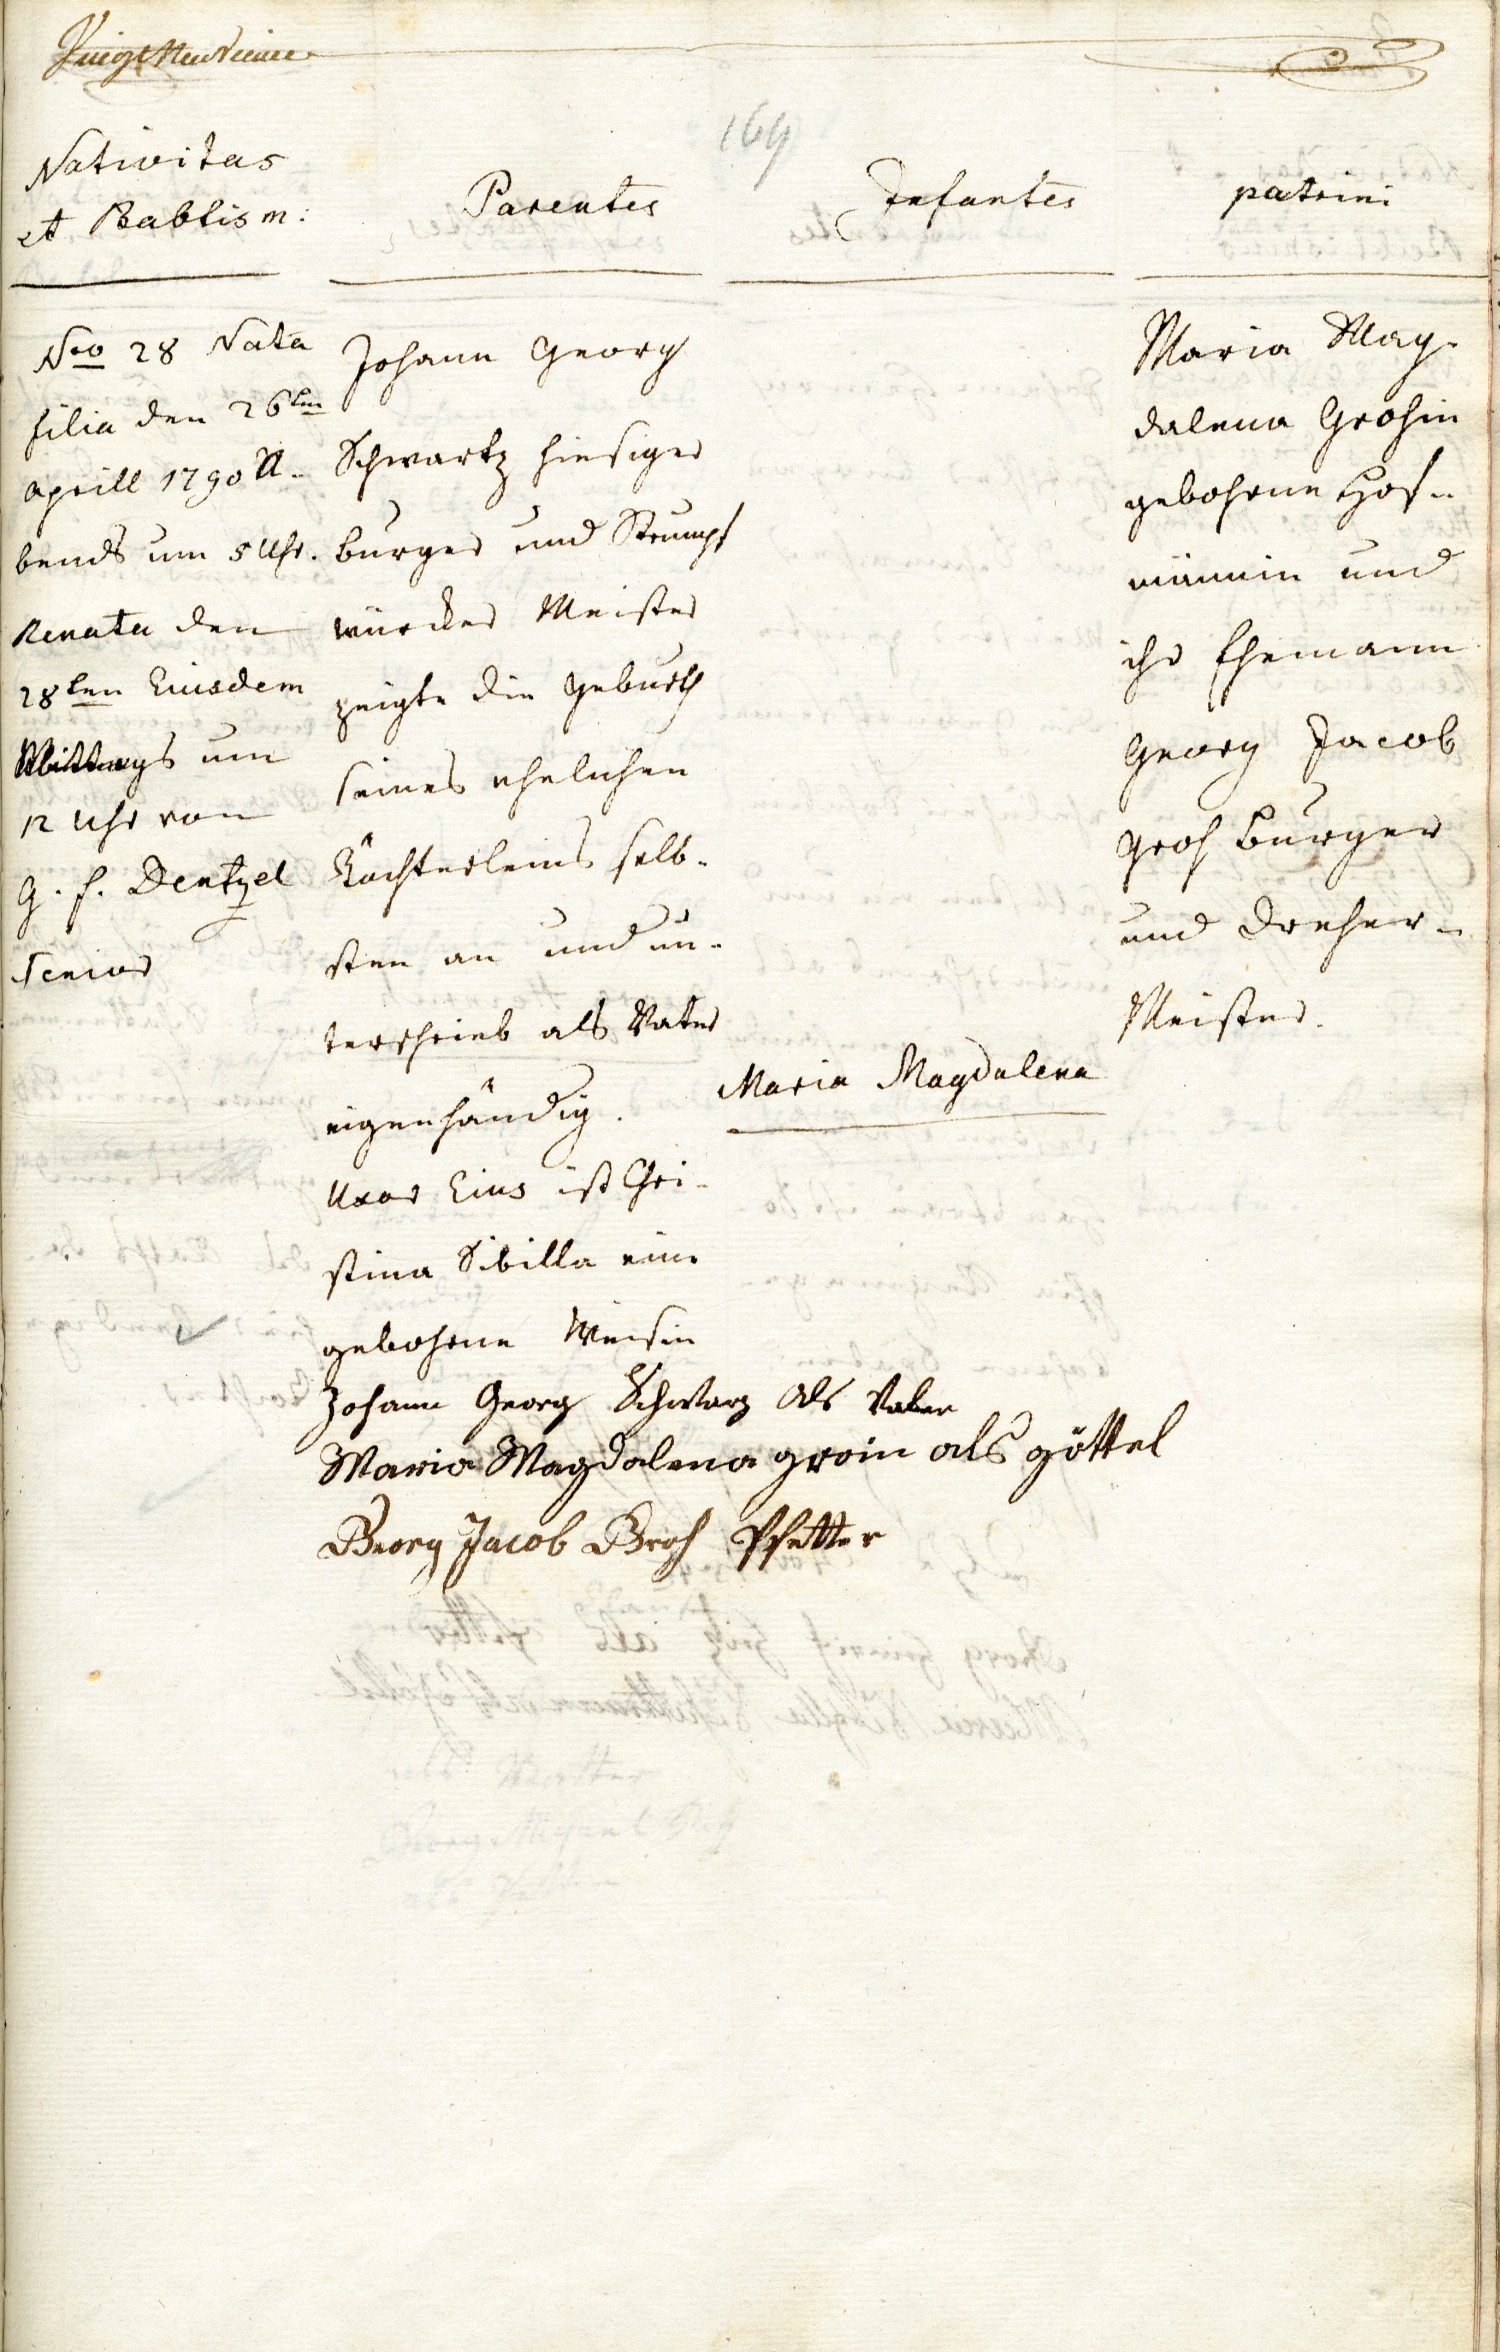 169
Nativitas
et Bablism:
Parentes
Infantes
patrini
Nro 28 Nata
filia den 26ten
Aprill 1790 A-
bends um 5 Uhr.
Renata den
28ten Eiusdem
Mittags um
12 Uhr von
G. F. Dentzel
Senior
Johann Georg
Schwartz hiesiger
burger und Strumpf
würcker Meister
zeigte die Geburth
seines ehelichen
Töchterleins selb-
sten an und un-
terschrieb als Vater
eigenhändig.
Uxor Eius ist Chri-
stina Sibilla eine
gebohrne Weisin
Maria Magdalena
Maria Mag-
dalena Grohin
gebohrne Hof-
männin und
ihr Ehemann
Georg Jacob
Groh Burger
und Dreher-
Meister.
Johann Georg Schwarz als Vater
Maria Magdalena groin als göttel
Georg Jacob Groh Pfetter